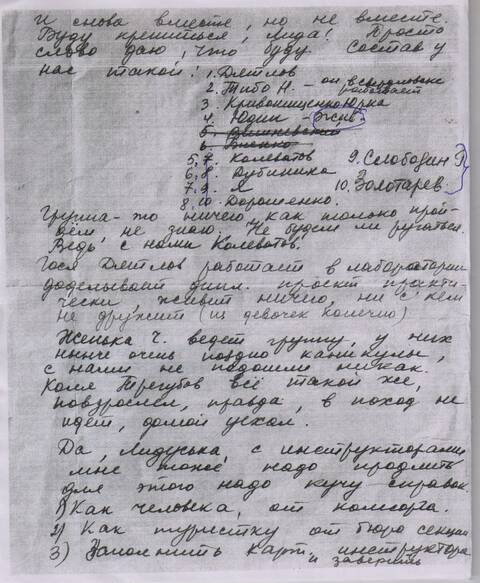 И снова вместе, но не вместе.
Буду крепиться, Лида! Просто
слово даю, что буду. Состав у
нас такой: 1. Дятлов
2. Тибо Н. – он в Свердловске
работает
3. Кривонищенко Юрка
4. Юдин – экив.
5. Вишневский
6. Биенко
5,7. Колеватов 9. Слободин Р.
6,8. Дубинина 10. Золотарев.
7,9. Я
8.10. Дорошенко.
Группа – то ничего, как только прой-
дём, не знаю. Не будем ли ругаться.
Ведь, с нами Колеватов.
Гося Дятлов работает в лаборатории
доделывает дипл. проект практи-
чески, живёт ничего, ни с кем
не дружит (из девочек конечно)
Женька Ч. ведёт группу, у них
нынче очень поздно каникулы,
с нами не подошли никак.
Коля Трегубов всё такой же,
повзрослел, правда, в поход не
идёт, домой уехал.
Да, Лидуська, с инструкторами
мне тоже надо продлить
для этого надо кучу справок.
1) Как человека, от комсорга.
2) Как туристку от бюро секции
3) Заполнить карт. инструктора
и заверить